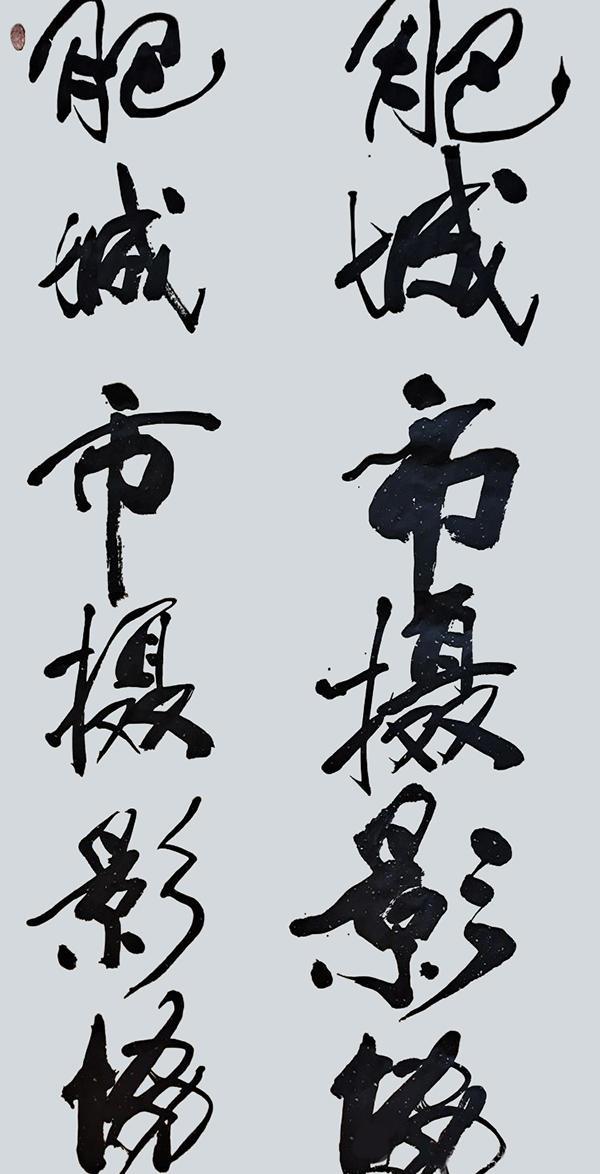 肥城市摄影協
肥城市摄影協